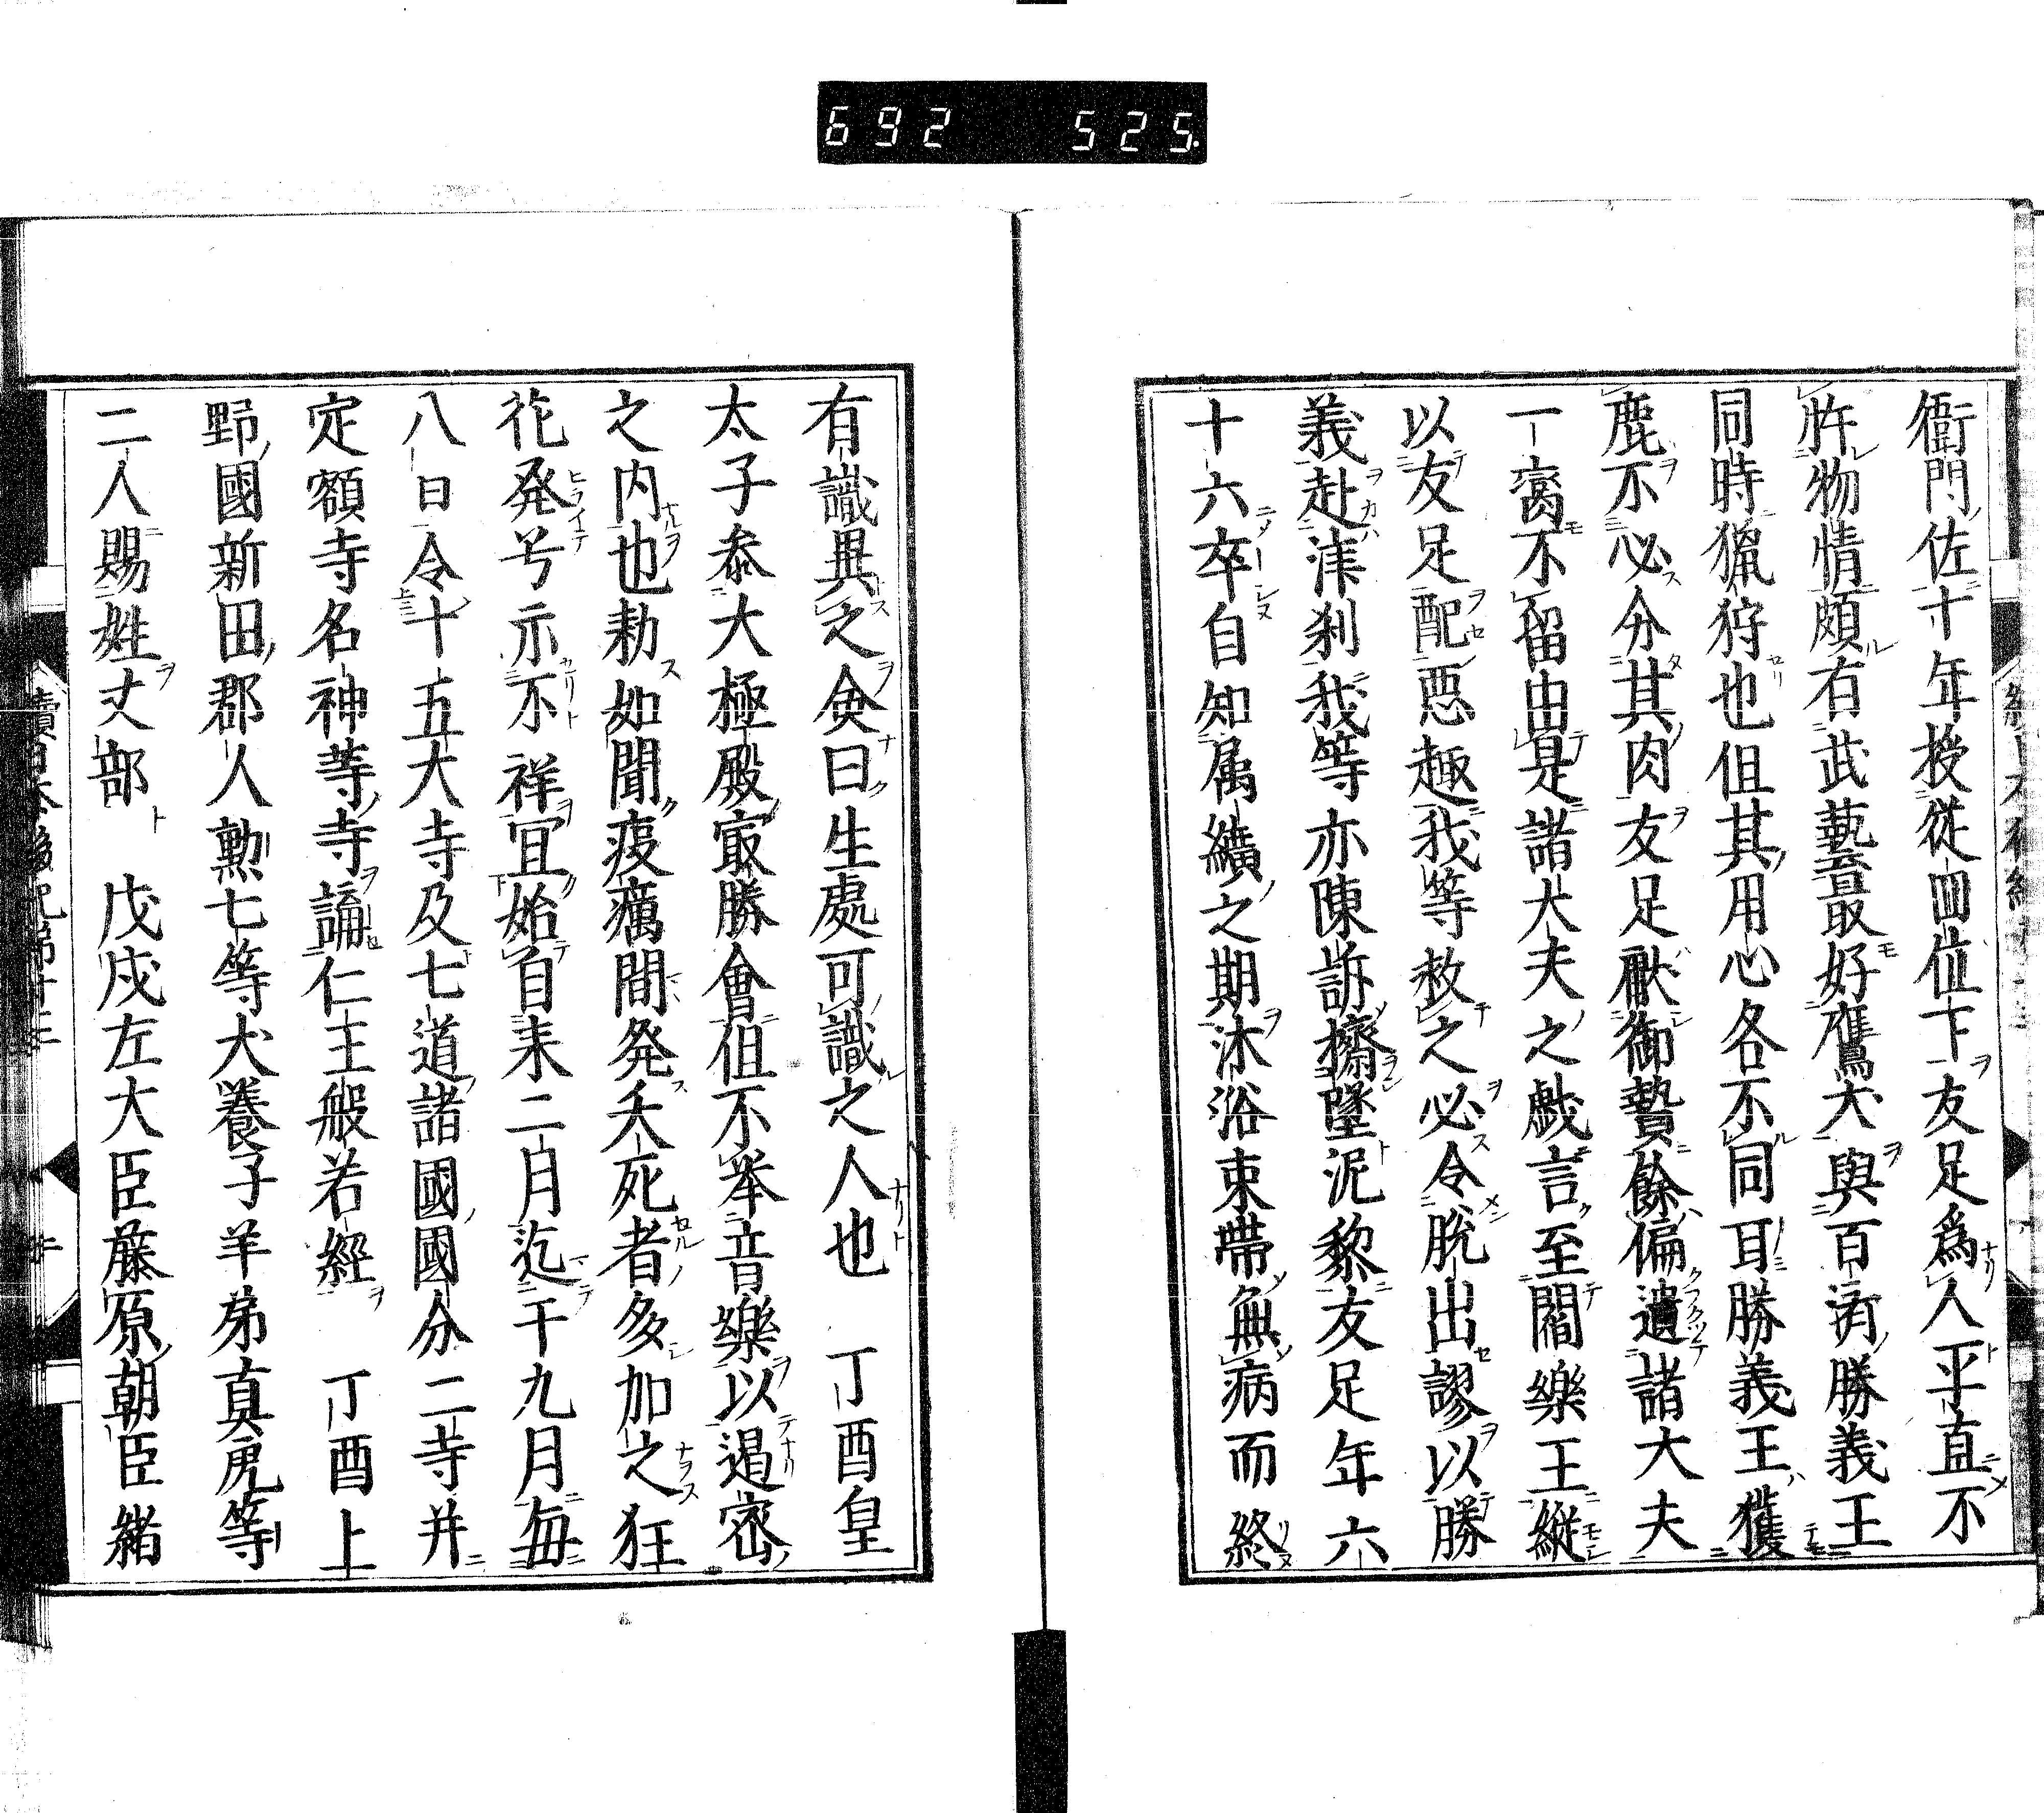 692 525
衞門佐十年授從四位下友足爲人平直不
忤物情頗有武藝最好鷹犬與百濟勝義王
同時獵狩也但其用心各不同耳勝義王獲
鹿不必分其肉友足獻御贄餘偏遺諸大夫
一臠不留由是諸大夫之戲言至閻樂王縱
以友足配惡趣我等救之必令脱出謬以勝
義赴津刹我等亦陳訴擠墜泥黎友足年六
十六卒自知属纊之期沐浴束帶無病而終
有識異之僉曰生處可識之人也　丁酉皇
太子叅大極殿㝡勝會但不举音樂以遏密
之内也勅如聞疫癘間発夭死者多加之狂
花発号示不祥宜始自来二月迄于九月毎
八日令十五大寺及七道諸國國分二寺并
定額寺名神等寺論仁王般若經　丁酉上
野國新田郡人勲七等犬養子羊弟真虎等
二人賜姓丈部　戊戌左大臣藤原朝臣緒